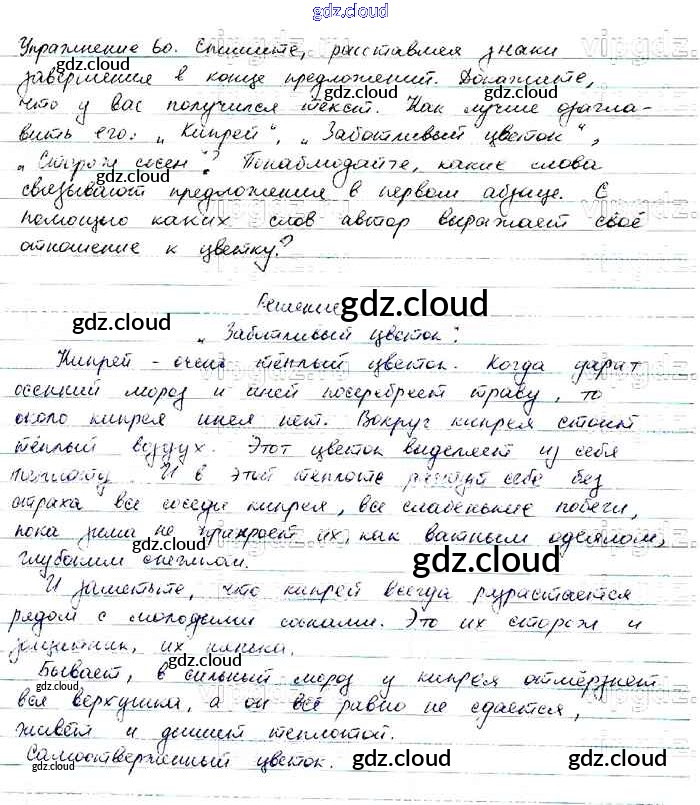 gdz.cloud
Упражнение 60. Спишите, расставляя знаки
завершения в конце предложений. Докажите,
что у вас получился текст. Как лучше озагла-
вить его: „Кипрей“, „Заботливый цветок“,
„Сторож сосен“? Понаблюдайте, какие слова
связывают предложения в первом абзаце. С
помощью каких слов автор выражает своё
отношение к цветку?
Решение
gdz.cloud
„Заботливый цветок“.
Кипрей - очень тёплый цветок. Когда ударит
осенний мороз и иней посеребреет траву, то
около кипрея инея нет. Вокруг кипрея стоит
тёплый воздух. Этот цветок выделяет из себя
теплоту. И в этой теплоте растут себе без
страха все соседи кипрея, все слабенькие побеги,
пока зима не прикроет их, как ватным одеялом,
глубоким снегом.
И заметьте, что кипрей всегда разрастается
рядом с молодыми соснами. Это их сторож и
защитник, их нянька.
Бывает, в сильный мороз у кипрея отмёрзнет
вся верхушка, а он всё равно не сдаётся,
живёт и дышит теплотой.
Самоотверженный цветок.
gdz.cloud